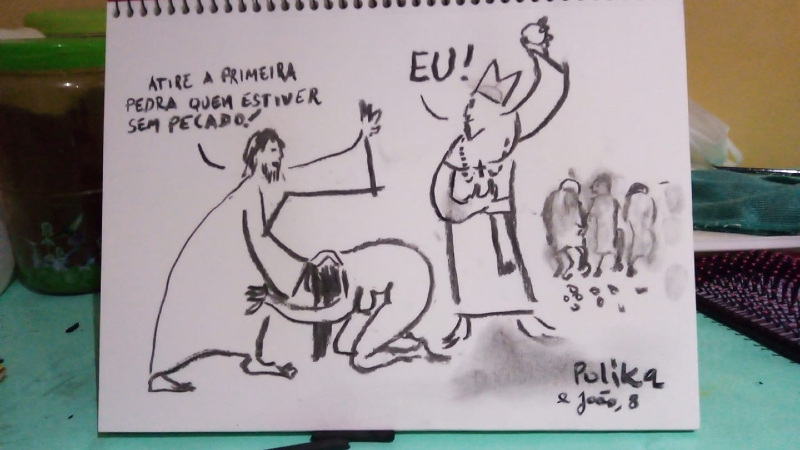 ATIRE A PRIMEIRA
PEDRA QUEM ESTIVER
SEM PECADO!
EU!
Pulika
e João, 8